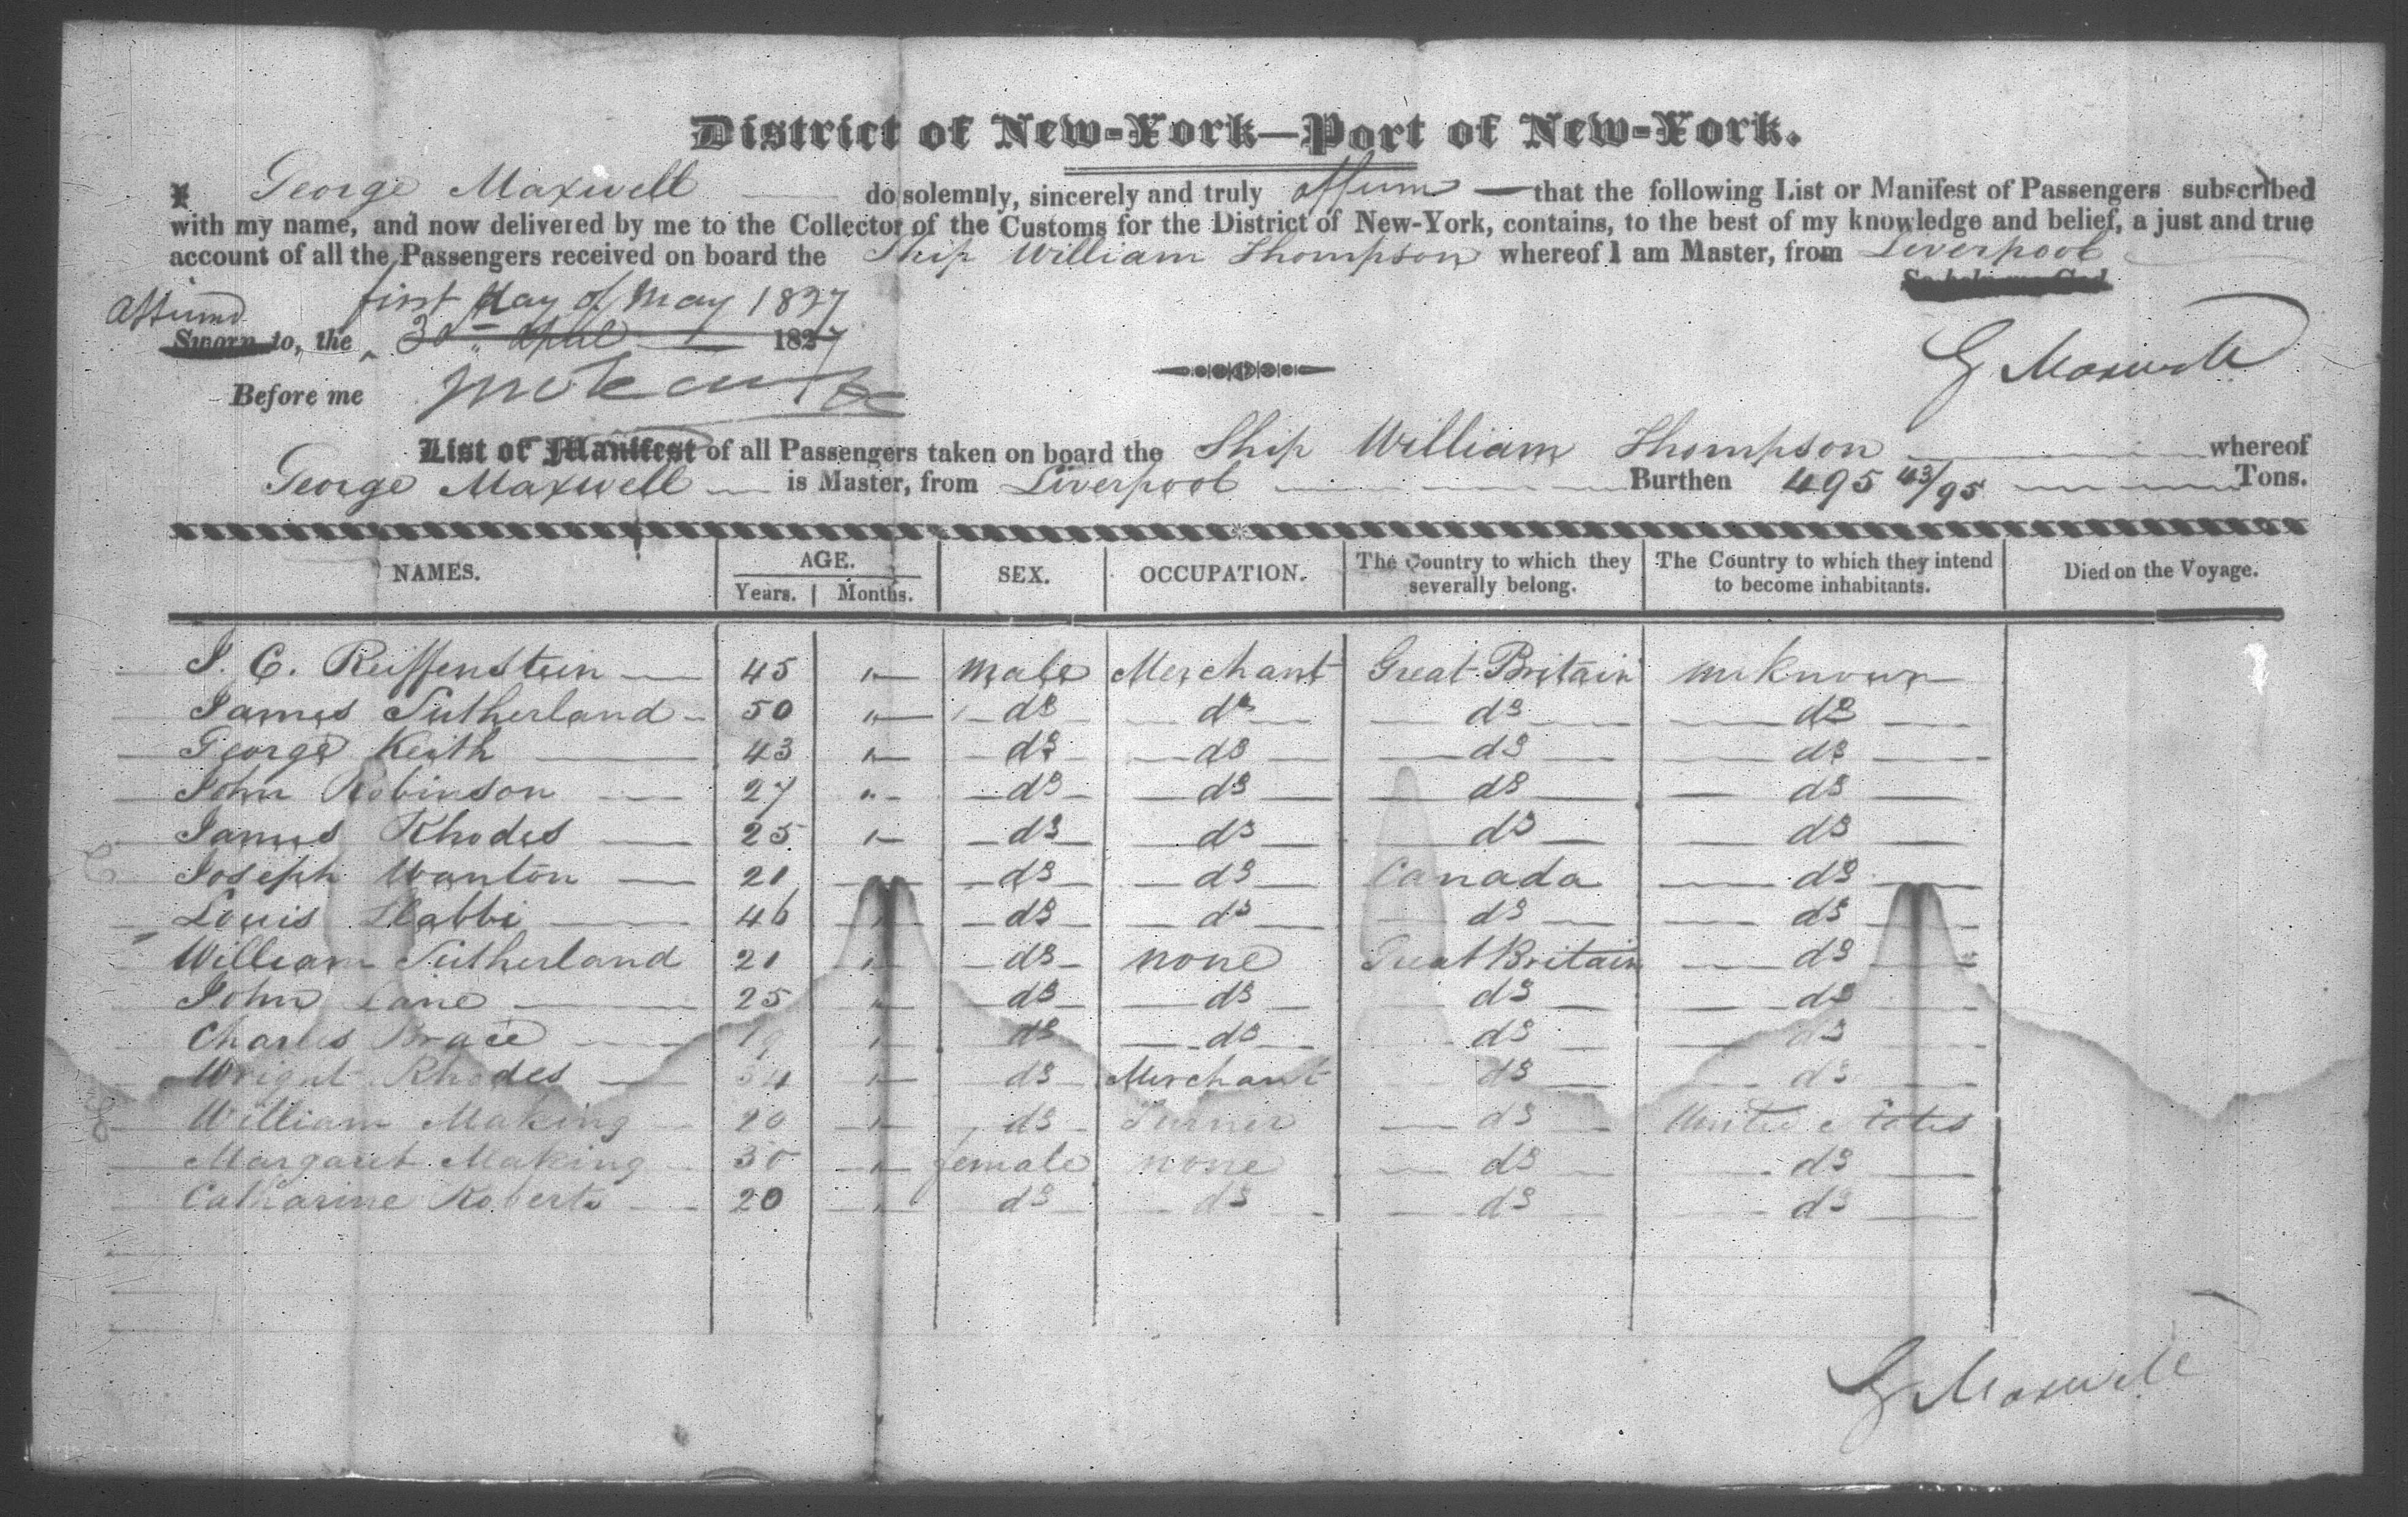 District of New-York—Port of New-York.
I George Maxwell do solemnly, sincerely and truly affirm that the following List or Manifest of Passengers subscribed
with my name, and now delivered by me to the Collector of the Customs for the District of New-York, contains, to the best of my knowledge and belief, a just and true
account of all the Passengers received on board the Ship William Thompson whereof I am Master, from Liverpool
So help me God
Affirmd first day of May 1827
Sworn to, the 30th April 1827
G Maxwell
Before me
List or Manifest of all Passengers taken on board the Ship William Thompson whereof
George Maxwell is Master, from Liverpool Burthen 495 43/95 Tons.
NAMES. AGE. Years. Months. SEX. OCCUPATION. The Country to which they severally belong. The Country to which they intend to become inhabitants. Died on the Voyage.
J. C. Reiffenstein 45 " male Merchant Great Britain unknown
James Sutherland 50 " do do do do
George Keith 43 " do do do do
John Robinson 27 " do do do do
James Rhodes 25 " do do do do
Joseph Wanton 21 do do Canada do
Louis 46 " do do do do
William Sutherland 21 " do none Great Britain do
John Lane 25 " do do do do
Charles Brace 19 " do do do do
Wright Rhodes 34 " do Merchant do do
William Making " do Turner do United States
Margaret Making 30 " female none do do
Catharine Roberts 20 " do do do do
G Maxwell